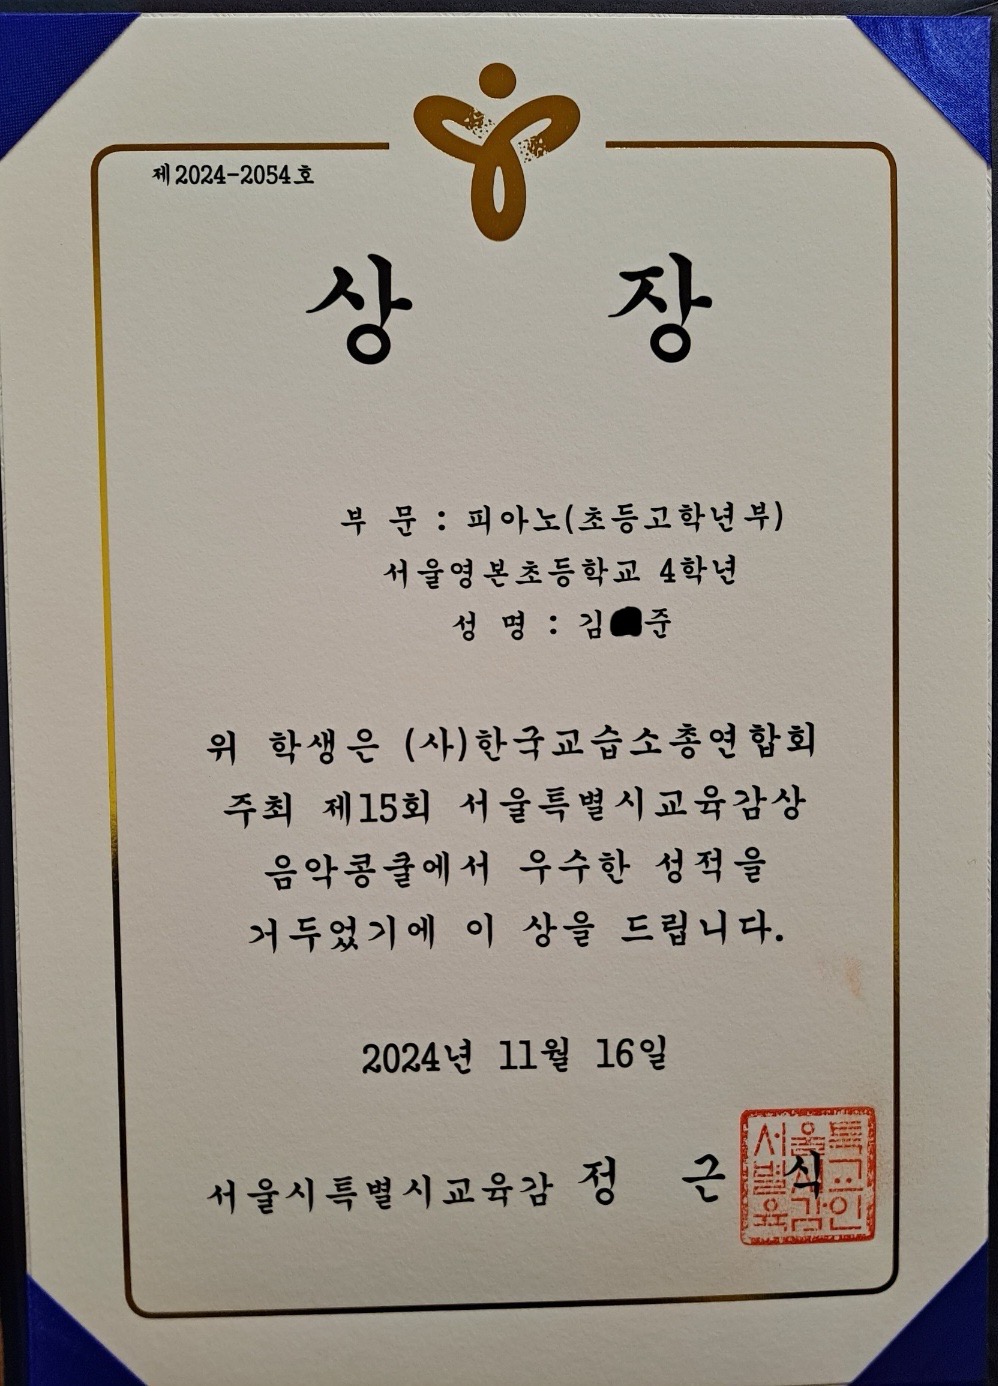 제2024-2054호
상 장
부 문 : 피아노(초등고학년부)
서울영본초등학교 4학년
성 명 : 김 준
위 학생은 (사)한국교습소총연합회
주최 제15회 서울특별시교육감상
음악콩쿨에서 우수한 성적을
거두었기에 이 상을 드립니다.
2024년 11월 16일
서울시특별시교육감 정 근 식
서울특
별시교
육감인